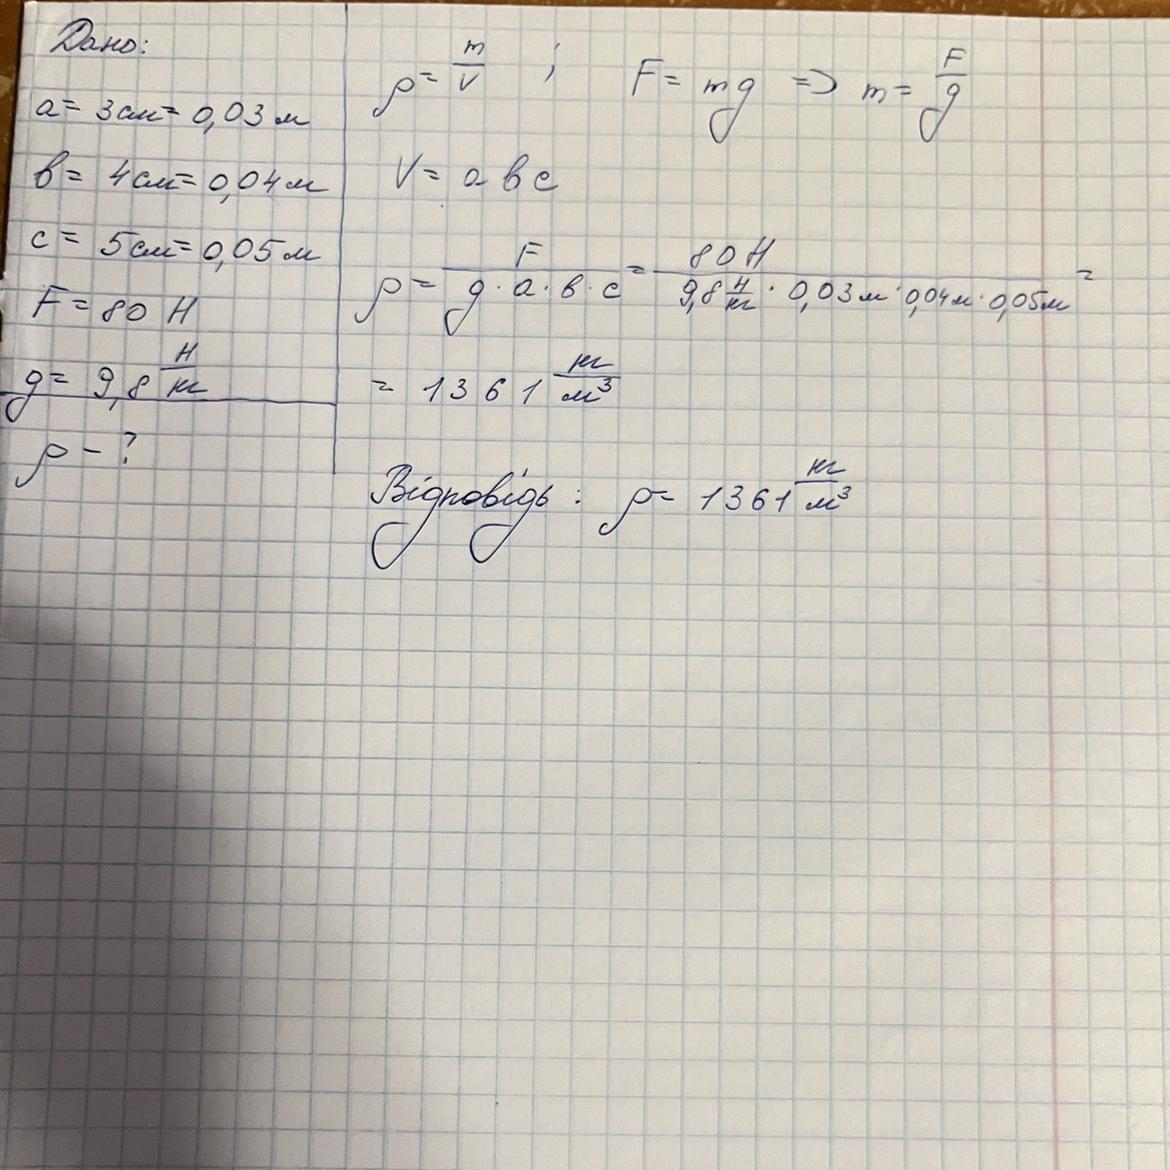 Дано:
a = 3см = 0,03 м
в = 4см = 0,04 м
c = 5см = 0,05 м
F = 80 Н
g = 9,8 Н/кг
ρ - ?
ρ = m/V ; F = mg => m = F/g
V = a в c
ρ = F/(g · a · в · c) = 80 Н/(9,8 Н/кг · 0,03 м · 0,04 м · 0,05 м) =
= 1361 кг/м³
Відповідь : ρ = 1361 кг/м³